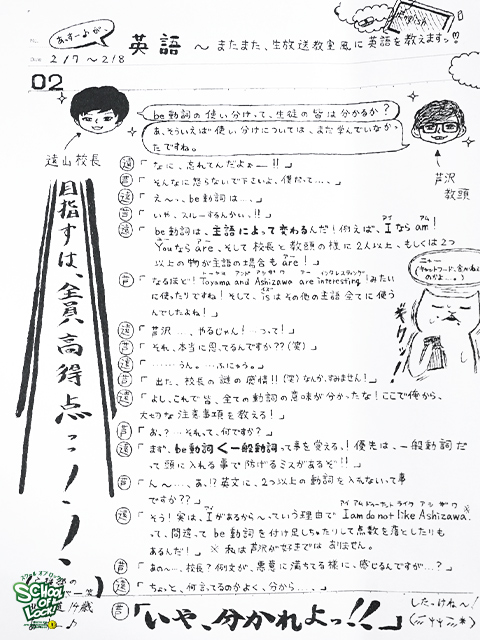 あ、すー♪が
英語 〜またまた、生放送教室風に英語を教えますっ!!
2/7〜2/8
02
be動詞の使い分けって、生徒の皆は分かるか?
あ、そういえば使い分けについては、まだ学んでいなかっ
たですね。
遠山校長
芦沢
教頭
目指すは、全員高得点っ!!!
遠「なに、忘れてんだよぉー!!」
芦「そんなに怒らないで下さいよ、僕だって…、」
遠「え〜、be動詞は…、」
芦「いや、スルーするんかいっ!!」
遠「be動詞は、主語によって変わるんだ!例えば、Iならam!
アイ アム
Youならare、そして校長と教頭の様に2人以上、もしくは2つ
アー
以上の物が主語の場合もare!」
アー
芦「なるほど!Toyama and Ashizawa are interesting!みたい
トーヤマ アンド アシザワ アー インタレスティング
に使ったりですね!そして、isはその他の主語全てに使う
イズ
んでしたよね!」
遠「芦沢……、やるじゃん!…って!」
芦「それ、本当に思ってるんですか??(笑)」
遠「……うん。…ふにゅう。」
芦「出た、校長の謎の感情!!(笑)なんか、すみません!」
遠「よし、これで皆、全ての動詞の意味が分かったな!ここで俺から、
大切な注意事項を教える!」
芦「お、?…それって、何ですか?」
遠「まず、be動詞<一般動詞って事を覚えろ、!優先は、一般動詞だ
って頭に入れる事で防げるミスがあるぞ!!」
芦「ん〜…、あ、!?英文に、2つ以上の動詞を入れないって事
ですか??」
遠「そう!実は、Iがあるから〜、っていう理由でI am do not like Ashizawa.※
アイ アム ドゥーナット ライク アシザワ
って、間違ってbe動詞を付け足しちゃたりして点数を落としたりも
あるんだ!」 ※私は芦沢が好きではありません。
芦「あの〜…、校長?例文が、悪意に満ちてる様に、感じるんですが…?」
遠「ちょっと、何言ってるのかよく、分から…、、」
芦「いや、分かれよっ!!」
ギクッ…!!
したっけね〜!
SCHOOL OF LOCK!
14歳